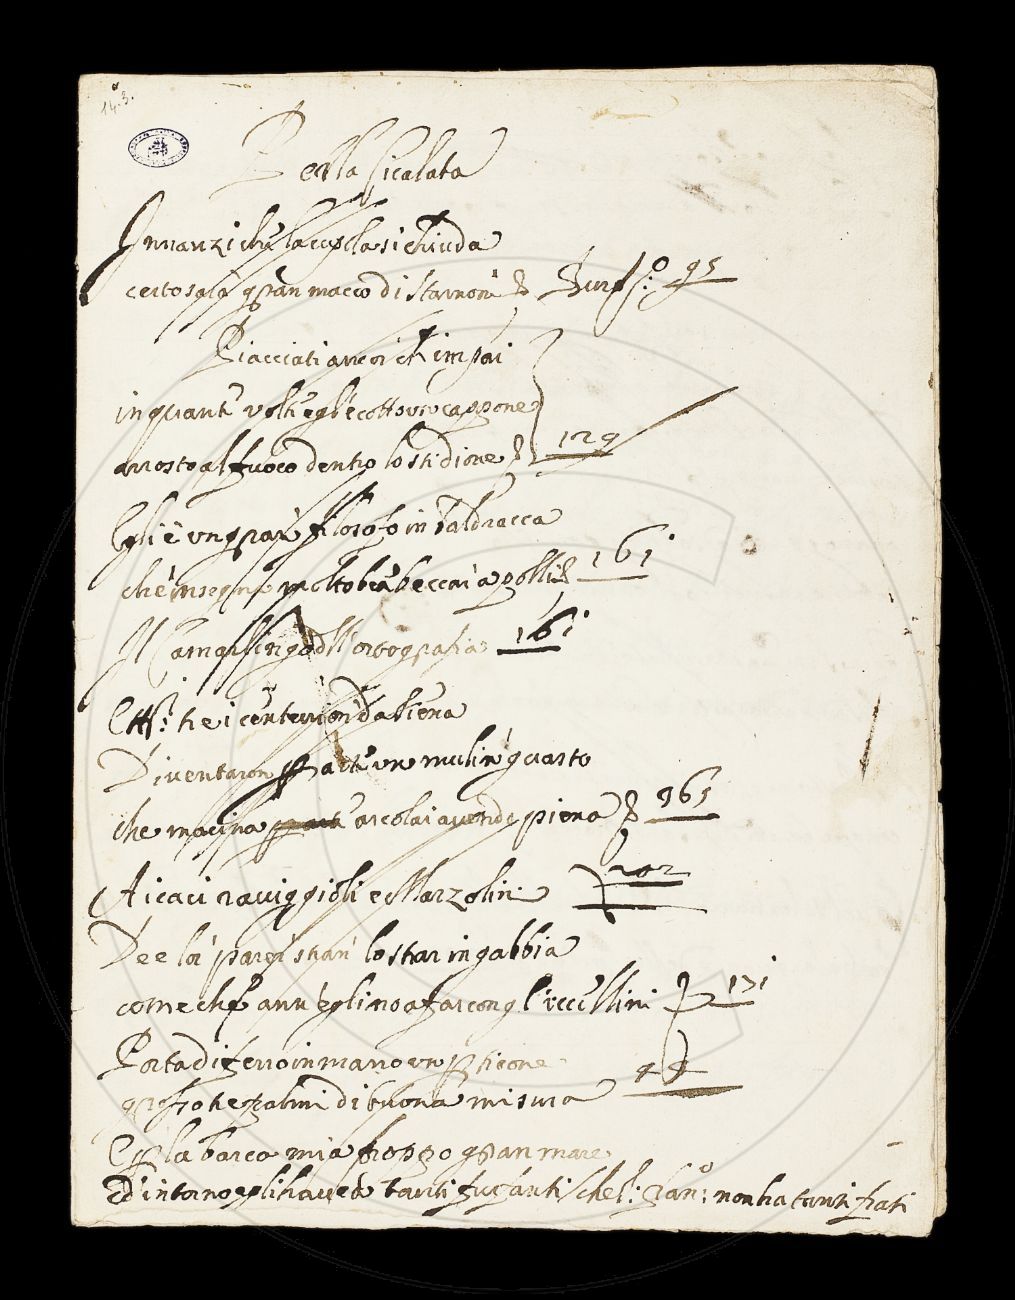 14.3.
Della Cicalata
Innanzi che la cupola si chiuda
certo sarà gran macco di starnoni
95
Piacciati ancor ch'impari
in quante volte egli è cotto un cappone
129
arrosto al fuoco dentro lo stidione
Egli è un gran filosofo in Baldracca
che insegna molto bene beccar a polli 161
Il Camarlingo dell'ortografia 161
he i centurion da Siena
Diventaron per arte un mulin guasto
che macina arcolai avendo piena 965
A i caci raviggioli e Marzolin 202
De e lor parer stran lo star in gabbia
come ch'abbi ann'eglino a far con gl'uccellini 171
Porta di ferro in mano un
di buona misura
E per la barca mia troppo gran mare
Ed'intorno egli havea tanti furfanti non ha tanti frati